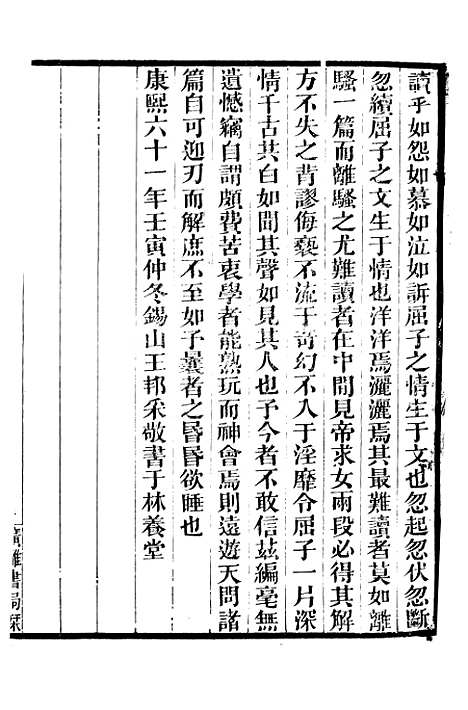 讀乎如怨如慕如泣如訴屈子之情生于文也忽起忽伏忽斷
忽續屈子之文生于情也洋洋焉灑灑焉其最難讀者莫如離
騷一篇而離騷之尤難讀者在中間見帝求女兩段必得其解
方不失之背謬侮褻不流于奇幻不入于淫靡令屈子一片深
情千古共白如聞其聲如見其人也予今者不敢信茲編毫無
遺憾竊自謂頗費苦衷學者能熟玩而神會焉則遠遊天問諸
篇自可迎刃而解庶不至如子曩者之昬昬欲睡也
康熙六十一年壬寅仲冬錫山王邦采敬書于林養堂
廣雅書局栞